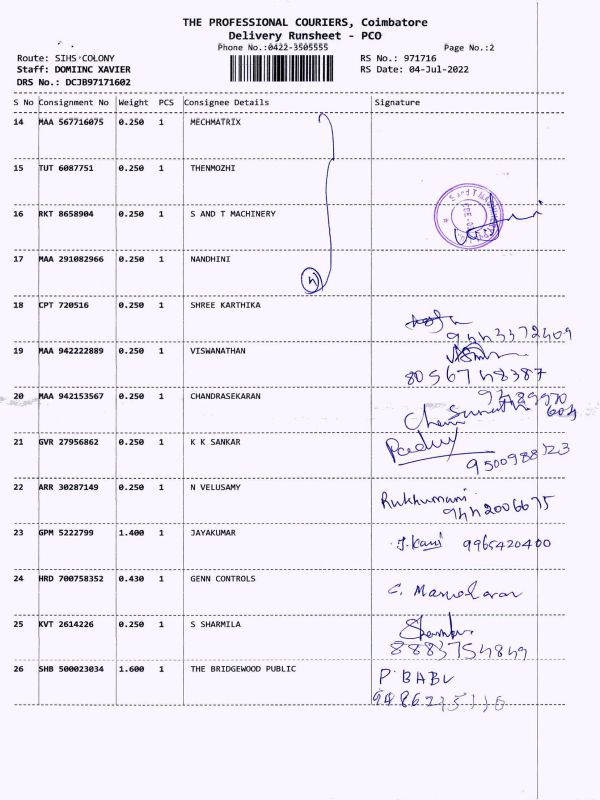 THE PROFESSIONAL COURIERS, Coimbatore
Delivery Runsheet - PCO
Phone No.:0422-3505555
Page No.:2
Route: SIHS COLONY
RS No.: 971716
Staff: DOMIINC XAVIER
RS Date: 04-Jul-2022
DRS No.: DCJB97171602
S No Consignment No Weight PCS Consignee Details Signature
14 MAA 567716075 0.250 1 MECHMATRIX
15 TUT 6087751 0.250 1 THENMOZHI
16 RKT 8658904 0.250 1 S AND T MACHINERY
17 MAA 291082966 0.250 1 NANDHINI
18 CPT 720516 0.250 1 SHREE KARTHIKA
19 MAA 942222889 0.250 1 VISWANATHAN
8056748387
20 MAA 942153567 0.250 1 CHANDRASEKARAN
21 GVR 27956862 0.250 1 K K SANKAR
22 ARR 30287149 0.250 1 N VELUSAMY
Rukhumani
9442006675
23 GPM 5222799 1.400 1 JAYAKUMAR
J. Kani 9965420400
24 HRD 700758352 0.430 1 GENN CONTROLS
C. Manoharan
25 KVT 2614226 0.250 1 S SHARMILA
8883754849
26 SHB 500023034 1.600 1 THE BRIDGEWOOD PUBLIC
P. BABU